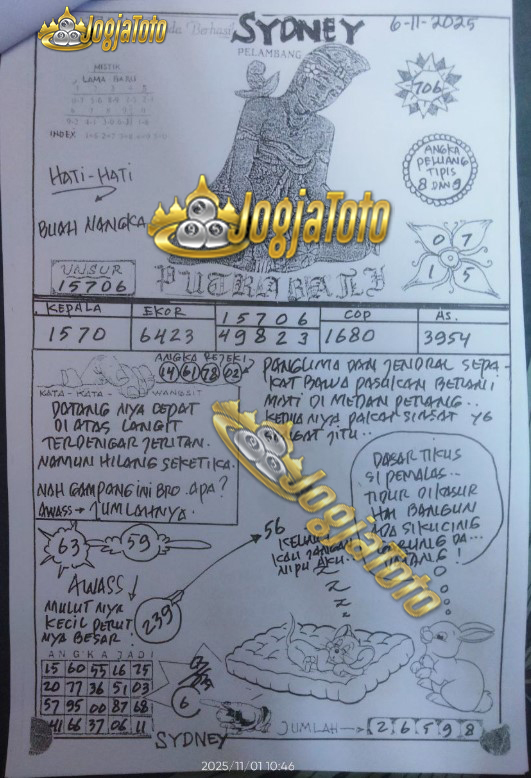 JogjaToto
SYDNEY
6-11-2025
PELAMBANG
MISTIK
LAMA BARU
INDEX
706
ANGKA
PELUANG
TIPIS
8 DAN 9
HATI-HATI
BUAH NANGKA
JogjaToto
0 7
1 5
UNSUR
15706
PUTRA BALI
KEPALA EKOR 15706 COP AS.
1570 6423 49823 1680 3954
ANGKA REJEKI
14 61 78 02
KATA - KATA - WANGSIT
DATANG NYA CEPAT
DI ATAS LANGIT
TERDENGAR JERITAN.
NAMUN HILANG SEKETIKA.
NAH GAMPANG INI BRO. APA?
AWASS → JUMLAHNYA.
PANGLIMA DAN JENDRAL SEPA-
KAT BAWA PASUKAN BERANI
MATI DI MEDAN PERANG..
KEDUA NYA PAKAR SIASAT YG
JITU..
JogjaToto
DASAR TIKUS
SI PEMALAS...
TIDUR DIKASUR
HAI BANGUN
ADA SI KUCING
63
59
56
AWASS
MULUT NYA
KECIL PERUT
NYA BESAR!
239
Z
Z
Z
ANGKA JADI
15 60 55 16 75
20 77 36 51 03
57 95 00 87 68
41 66 37 06 11
6
JUMLAH → 2 6 5 9 8
SYDNEY
2025/11/01 10:46